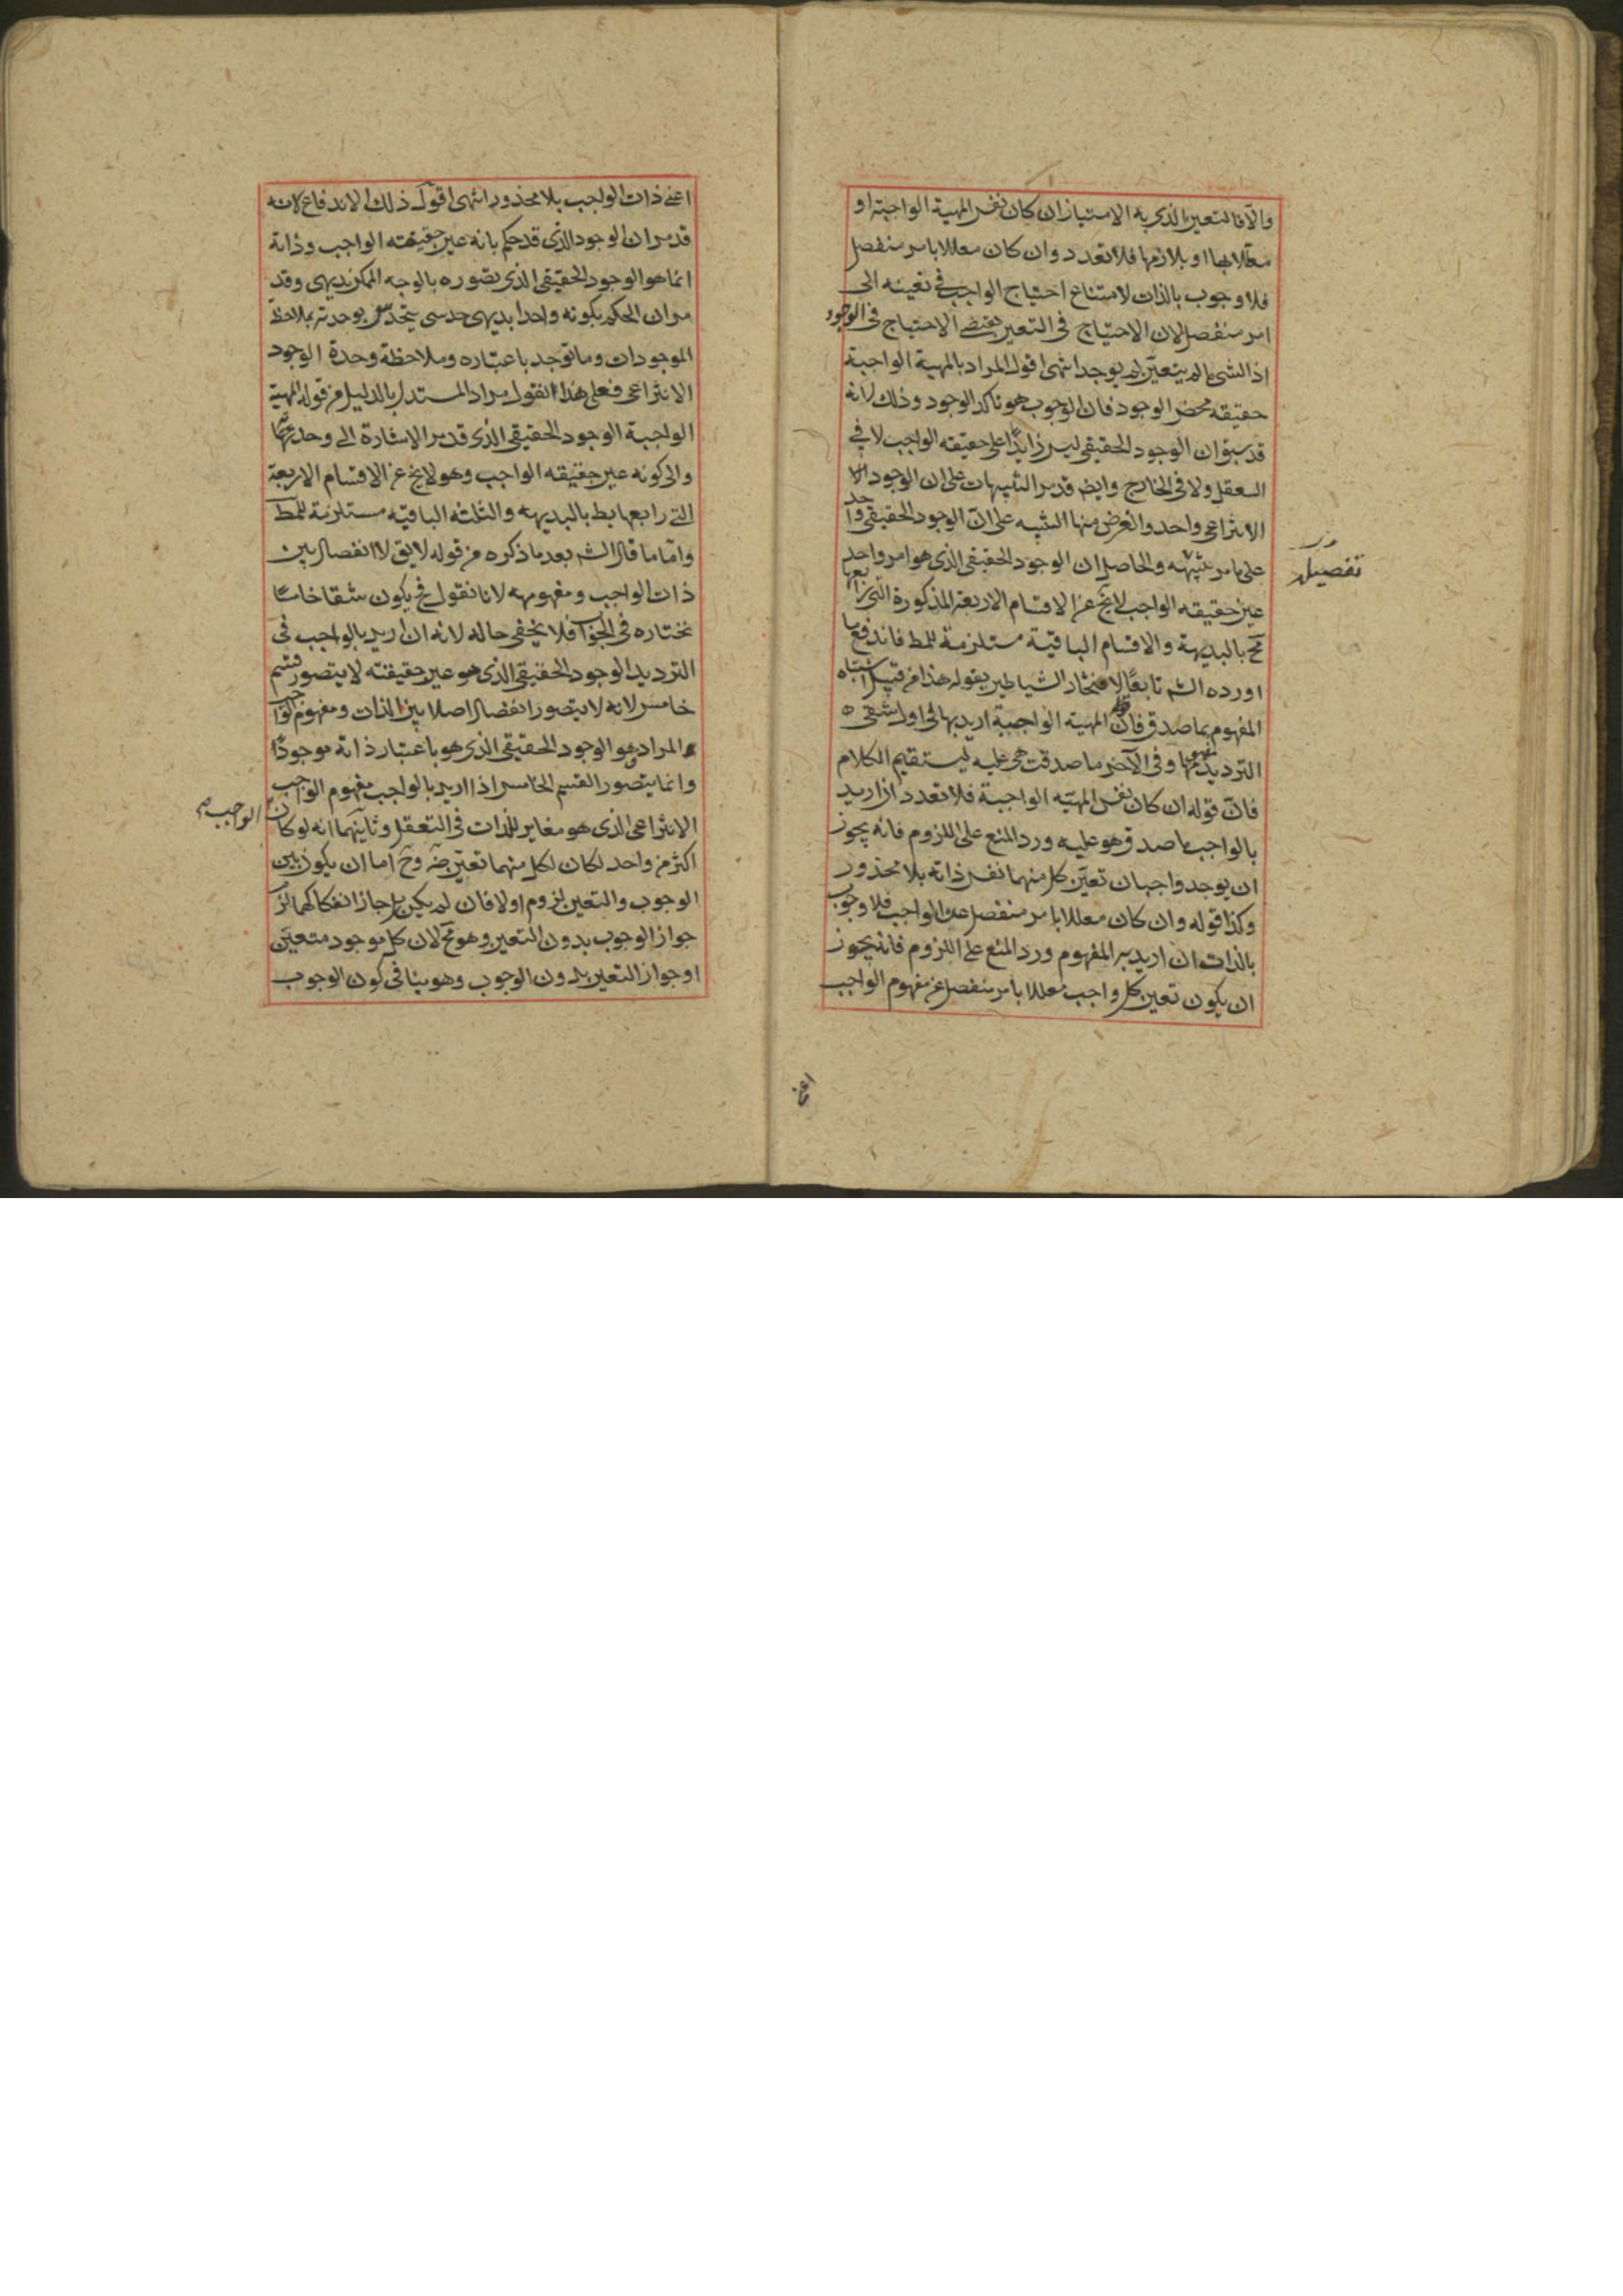 والّا فالتعين الذى به الامتياز ان كان نفس المهية الواجبة او
معللا بها او بلازمها فلا تعدد وان كان معللا بامر منفصل
فلا وجوب بالذات لامتناع احتياج الواجب فى تعينه الى
امر منفصل لان الاحتياج فى التعين يقتضى الاحتياج فى الوجود
اذ الشى ما لم يتعيّن لم يوجد انتهى اقول المراد بالمهية الواجبة
حقيقة محض الوجود فان الوجوب هو تاكد الوجود وذلك لانه
قد سبق ان الوجود الحقيقى ليس زايدًا على حقيقه الواجب لا فى
التعقل ولا فى الخارج وايض قد مر التنبيهات على ان الوجود
الانتزاعى واحد والغرض منها التنبيه على انّ الوجود الحقيقى واحد
على ما مر تنبيهه والحاصل ان الوجود الحقيقى الذى هو امر واحد
عين حقيقه الواجب لا يخ عن الاقسام الاربعة المذكورة التى رابعها
مح بالبديهة والاقسام الباقية مستلزمة للمط فاندفع ما
اورده الش تابعًا لافتخار الشياطين بقوله هذا من قبيل اشتباه
المفهوم بما صدق فانّ المهية الواجبة اريد بها فى اول شقى
الترديد مفهومها وفى الآخر ما صدقت هى عليه ليستقيم الكلام
فانّ قوله ان كان نفس المهيّه الواجبة فلا تعدد ان اريد
بالواجب ما صدق هو عليه ورد المنع على اللزوم فانه يجوز
ان يوجد واجبان تعيّن كل منهما نفس ذاته بلا محذور
وكذا قوله وان كان معللا بامر منفصل عن الواجب فلا وجوب
بالذات ان اريد به المفهوم ورد المنع على اللزوم فانه يجوز
ان يكون تعين كل واجب معللا بامر منفصل عن مفهوم الواجب
تفصيل
اعنى
اعنى ذات الواجب بلا محذور انتهى اقول ذلك الاندفاع لانه
قد مر ان الوجود الذى قد حكم بانه عين حقيقته الواجب وذاته
انما هو الوجود الحقيقى الذى تصوره بالوجه الممكن بديهى وقد
مر ان الحكم بكونه واحدا بديهى حدسى يتحدس بوحدته بملاحظة
الموجودات وما توجد باعتباره وملاحظة وحدة الوجود
الانتزاعى فعلى هذا نقول مراد المستدل بالدليل من قوله المهية
الواجبة الوجود الحقيقى الذى قد مر الاشارة الى وحدته
والى كونه عين حقيقه الواجب وهو لا يخ عن الاقسام الاربعة
التى رابعها بط بالبديهه والثلثه الباقيه مستلزمة للمط
وامّا ما قال الش بعد ما ذكره من قوله لا يق لا انفصال بين
ذات الواجب ومفهومه لانا نقول فح يكون شقا خامسًا
نختاره فى الجواب فلا يخفى حاله لانه ان اريد بالواجب فى
الترديد الوجود الحقيقى الذى هو عين حقيقته لا يتصور قسم
خامس لانه لا يتصور انفصال اصلا بين الذات ومفهوم الواجب
المراد هو الوجود الحقيقى الذى هو باعتبار ذاته موجودًا
وانما يتصور القسم الخامس اذا اريد بالواجب مفهوم الواجب
الانتزاعى الذى هو مغاير للذات فى التعقل وثانيهما انه لو كان
الواجب
اكثر من واحد لكان لكل منهما تعيّن ضه وح اما ان يكون بين
الوجوب والتعين لزوم او لا فان لم يكن بل جاز انفكاكهما لزم
جواز الوجوب بدون التعين وهو مح لان كل موجود متعيّن
او جواز التعين بدون الوجوب وهو ينافى كون الوجوب